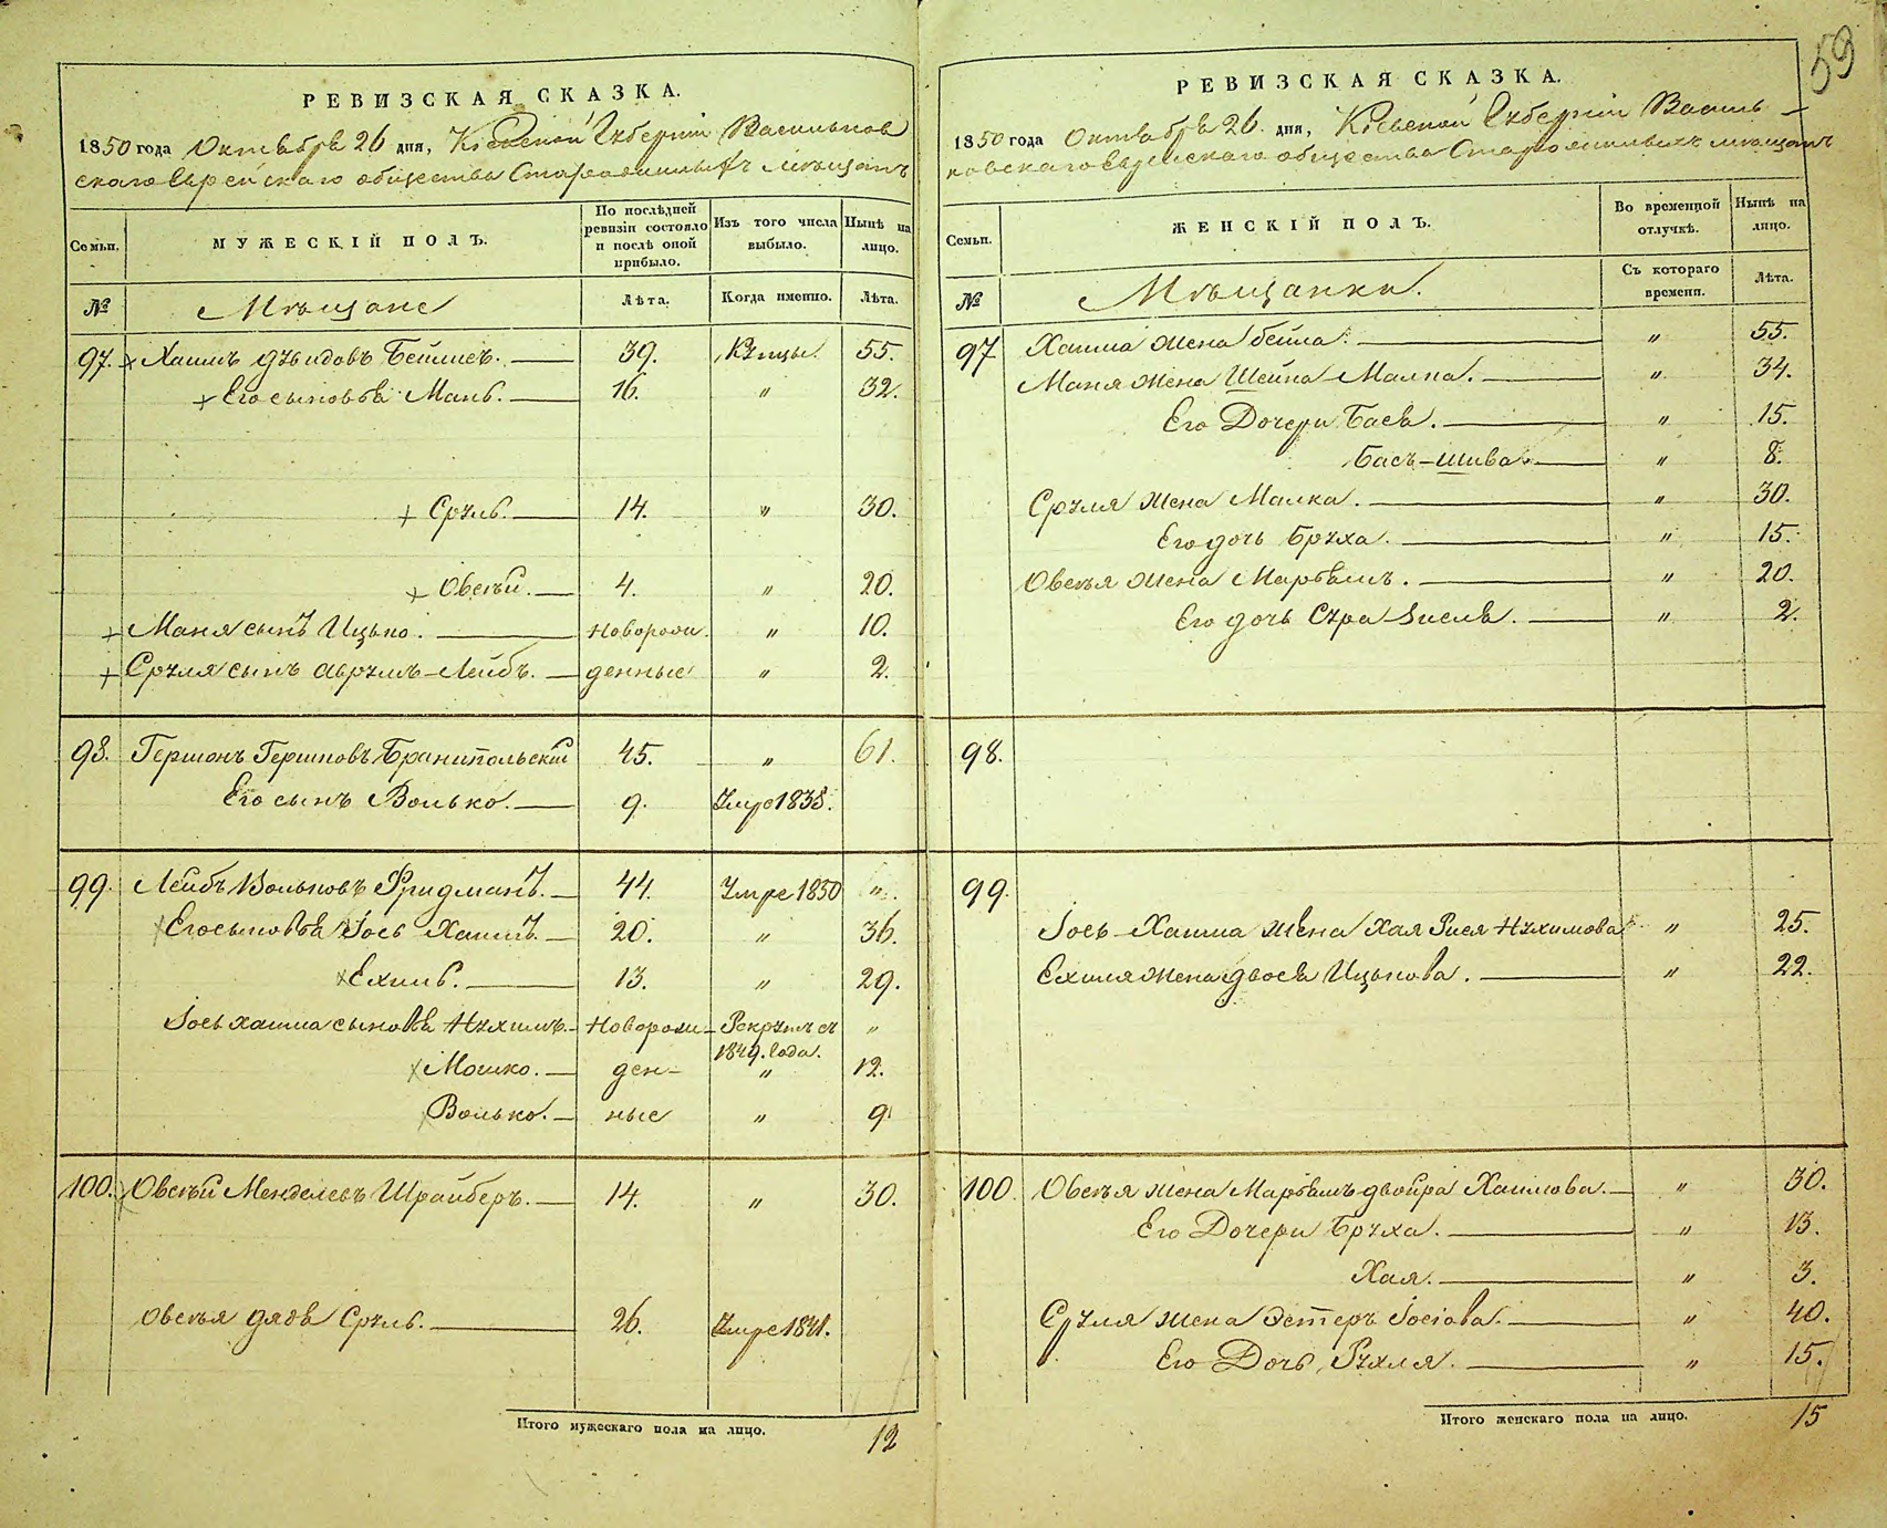 59
РЕВИЗСКАЯ СКАЗКА.
1850 года Октября 26 дня, Кіевской Губерніи Васильков
скаго Еврейскаго общества Старожилыхъ мѣщанъ
Семьи.
МУЖЕСКІЙ ПОЛЪ.
По послѣдней ревизіи состояло и послѣ оной прибыло.
Изъ того числа выбыло.
Нынѣ на лицо.
№
Мѣщане
Лѣта.
Когда именно.
Лѣта.
97. Хаимъ Дувидовъ 39. 55.
Его сыновья Мань. 16. " 32.
Сруль. 14. " 30.
Овсѣй. 4. " 20.
Маня сынъ Ицько. новорож " 10.
Сруля сынъ Аврумъ-Лейбъ. денные " 2.
98. Гершонъ Гершковъ Бранипольскій 45. " 61.
Его сынъ Волько. 9. Умре 1838.
99. Лейбъ Вольковъ Фридманъ. 44. Умре 1850 "
Его сыновья Іось Хаимъ. 20. " 36.
Ехиль. 13. " 29.
Іось Хаима сыновья Нухимъ. Новорож Рекрутъ съ "
1849. года.
Мошко. ден- " 12.
Волько. ные " 9
100. Овсѣй Менделевъ Шрайберъ. 14. " 30.
Овсѣя дядя Сруль. 26. Умре 1841.
Итого мужескаго пола на лицо. 12
РЕВИЗСКАЯ СКАЗКА.
1850 года Октября 26. дня, Кіевской Губерніи Василь-
ковскаго Еврейскаго общества Старожилыхъ мѣщанъ
Семьи.
ЖЕНСКІЙ ПОЛЪ.
Во временной отлучкѣ.
Нынѣ на лицо.
№
Мѣщанки.
Съ котораго времени.
Лѣта.
97 Хаима жена Бейла. " 55.
Маня жена Шейна-Малка. " 34.
Его Дочери Бася. " 15.
Бась-шива. " 8.
Сруля жена Малка. " 30.
Его дочь Бруха. " 15.
Овсѣя жена Марьямъ. " 20.
Его дочь Сура-Зисля. " 2.
98.
99.
Іось-Хаима жена Хая Рися Нухимова " 25.
Ехиля жена Двося Ицькова. " 22.
100. Овсѣя жена Марьямъ-двойра Хаимова. " 30.
Его Дочери Бруха. " 13.
Хая. " 3.
Сруля жена Эстеръ Іосіова. " 40.
Его Дочь Рухля. " 15.
Итого женскаго пола на лицо. 15